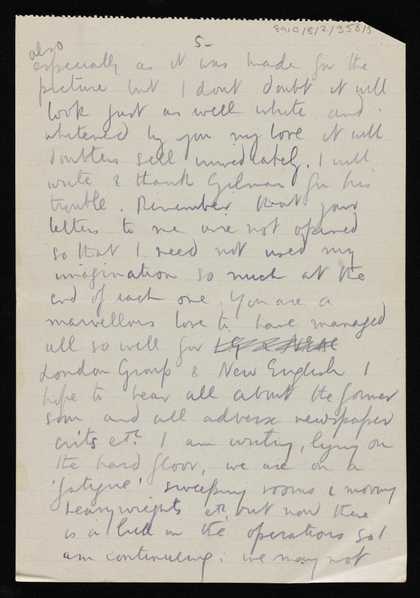 5-
also
especially as it was made for the
picture but I dont doubt it will
look just as well white and
whitened by you my love it will
doubtless sell immediately. I will
write & thank Gilman for his
trouble. Remember that your
letters to me are not opened
so that I need not used my
imagination so much at the
end of each one. You are a
marvellous love to have managed
all so well for
London Group & New English I
hope to hear all about the former
soon and all adverse newspaper
crits etc. I am writing, lying on
the hard floor, we are on a
'fatigue' sweeping rooms & moving
heavyweights etc but now there
is a lull in the operations so I
am continuing. We may not